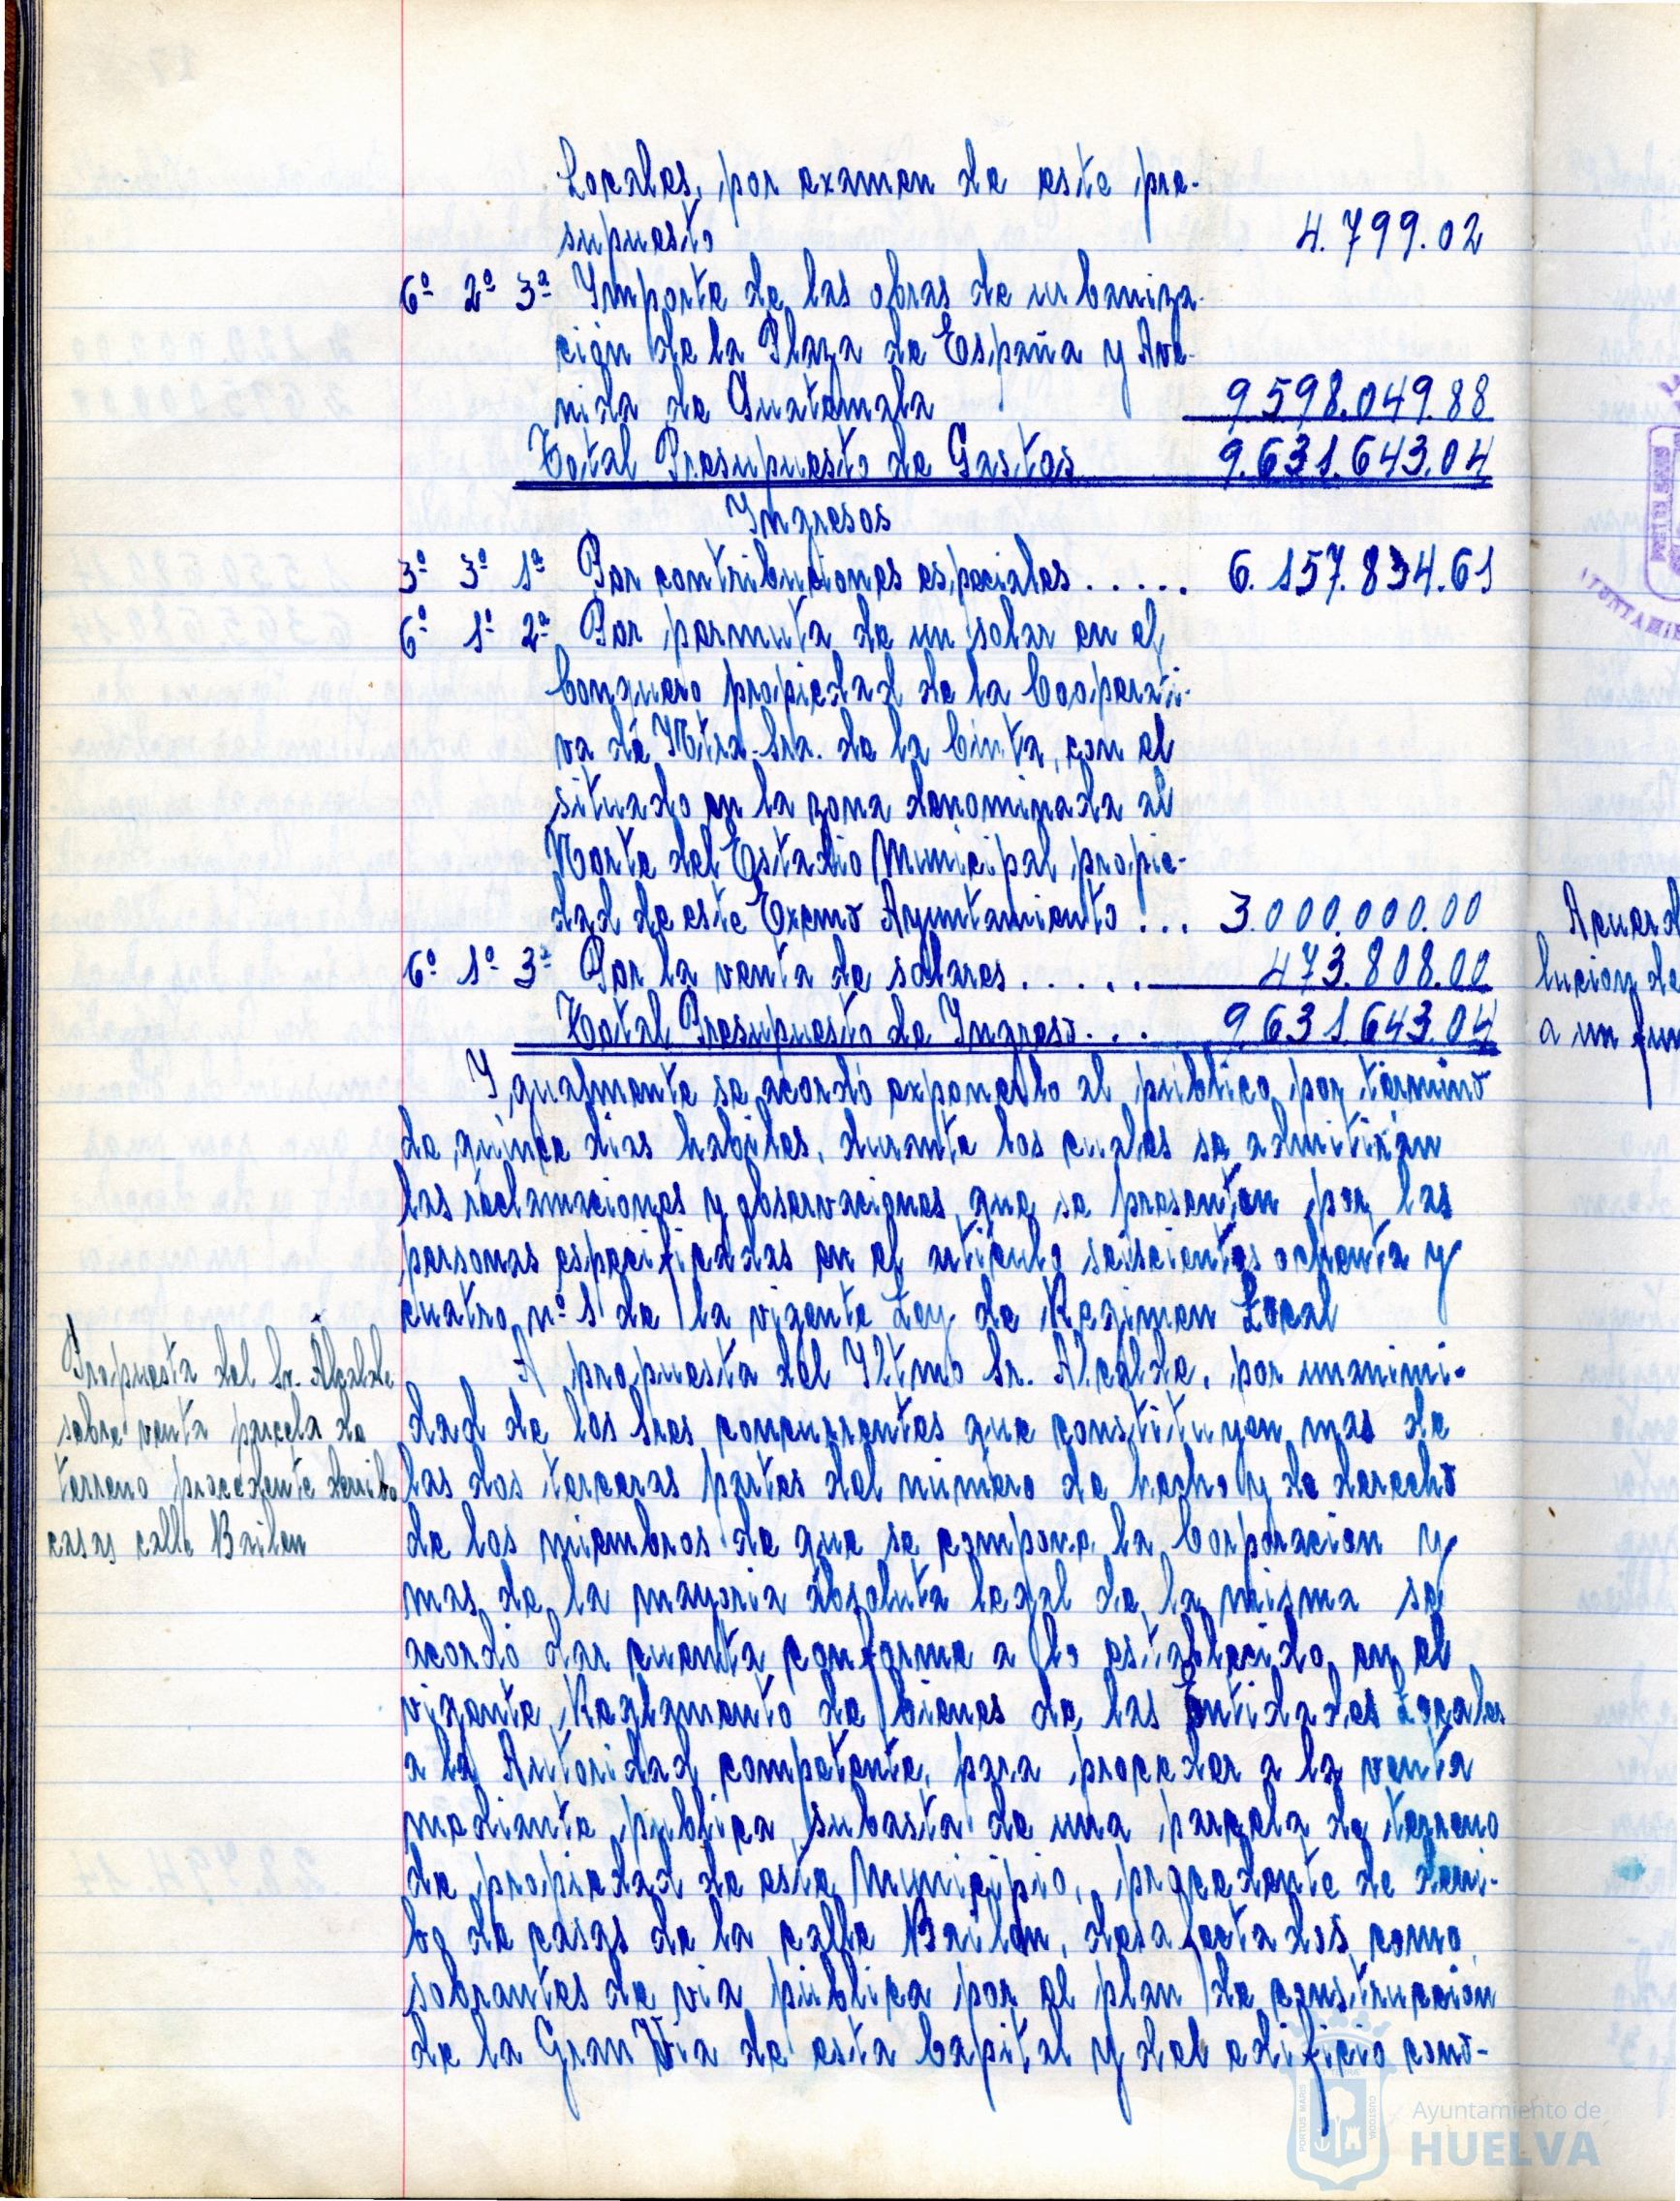 Locales, por examen de este pre-
supuesto 4.799.02
6º 2º 3ª Importe de las obras de urbaniza-
ción de la Plaza de España y Ave-
nida de Guatemala 9598.049.88
Total Presupuesto de Gastos 9.631.643.04
Ingresos
3º 3º 1ª Por contribuciones especiales ..... 6.157.834.61
6º 1º 2ª Por permuta de un solar en el
Conquero propiedad de la Cooperati-
va de Ntra. Sra. de la Cinta, con el
situado en la zona denominada al
Norte del Estadio Municipal, propie-
dad de este Excmo Ayuntamiento ... 3.000.000.00
6º 1º 3ª Por la venta de solares ..... 473.808.00
Total Presupuesto de Ingreso ... 9.631.643.04
Igualmente se acordó exponerlo al público, por término
de quince dias habiles, durante los cuales se admitirán
las reclamaciones y observaciones que se presenten por las
personas especificadas en el articulo seiscientos ochenta y
cuatro nº 1 de la vigente Ley de Regimen Local
Propuesta del Sr. Alcalde
sobre venta parcela de
terreno procedente derribo
casas calle Bailen
A propuesta del Iltmo Sr. Alcalde, por unanimi-
dad de los Sres concurrentes que constituyen mas de
las dos terceras partes del número de hecho y de derecho
de los miembros de que se compone la Corporacion y
mas de la mayoria absoluta legal de la misma se
acordó dar cuenta conforme a lo establecido en el
vigente Reglamento de bienes de las Entidades Locales
a la Autoridad competente, para proceder a la venta
mediante publica subasta de una parcela de terreno
de propiedad de este Municipio, procedente de derri-
bo de casas de la calle Bailén, desafectados como
sobrantes de via pública por el plan de construccion
de la Gran Via de esta Capital y del edificio cono-
lucion de
a un
Ayuntamiento de
HUELVA